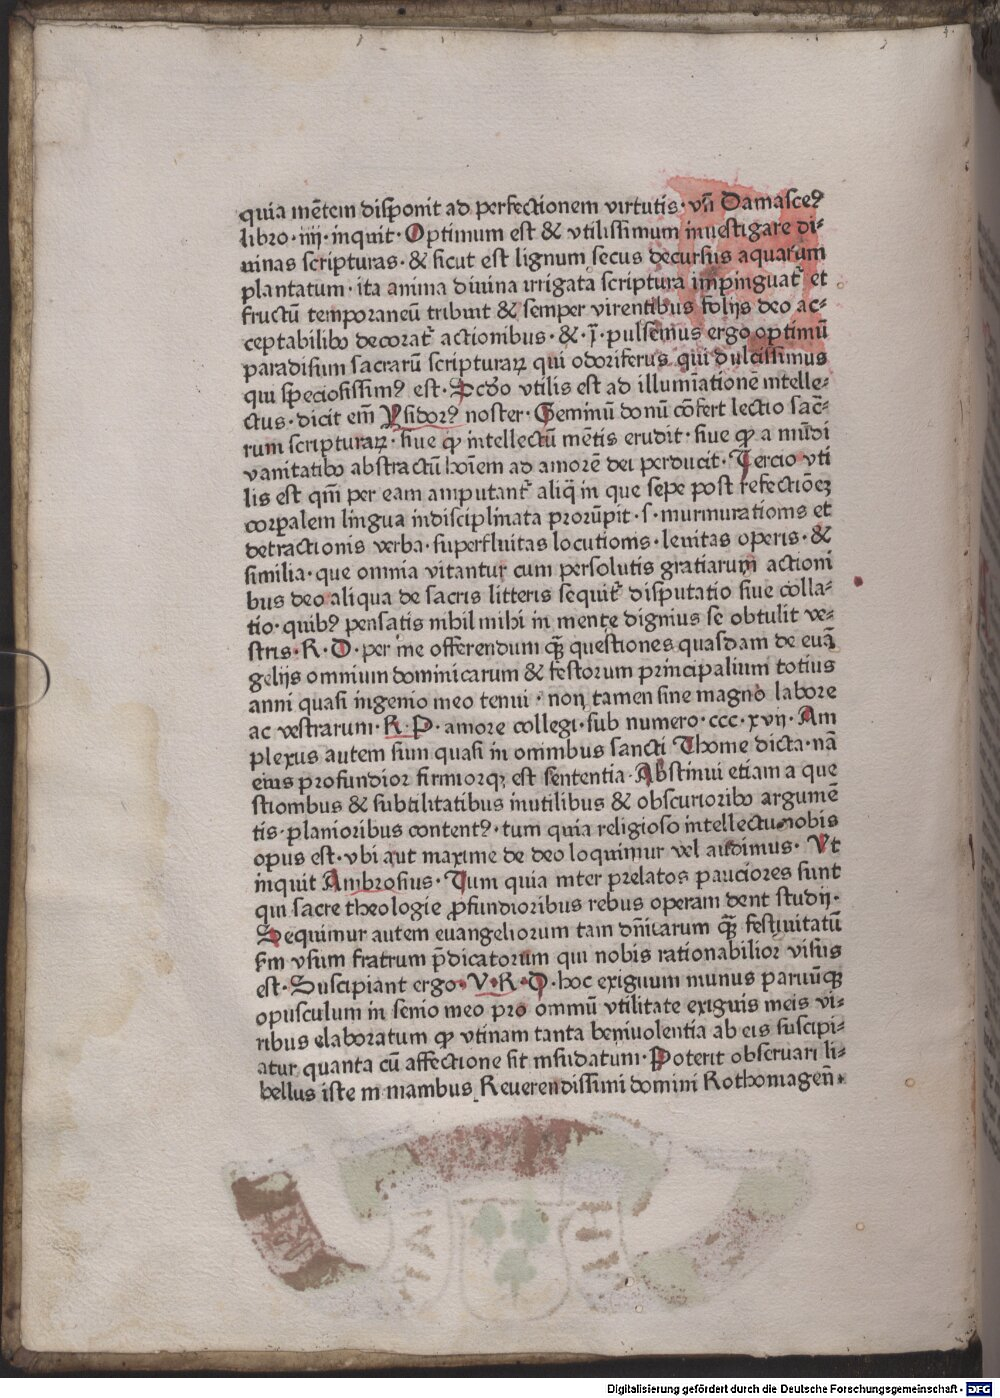 quia mētem disponit ad perfectionem virtutis· vñ Damasceꝰ
libro·iiij·inquit·Optimum est & vtilissimum inuestigare di⸗
uinas scripturas·& sicut est lignum secus decursus aquarum
plantatum·ita anima diuina irrigata scriptura impinguat᷑ et
fructū temporaneū tribuit & semper virentibus folijs deo ac⸗
ceptabilibꝫ decorat᷑ actionibus·&·ī·pulsemus ergo optimū
paradisum sacrarū scripturaꝝ qui odoriferus qui dulcissimus
qui speciosissimꝰ est·Scdo vtilis est ad illumīationē intelle⸗
ctus·dicit em̄ Ysidorꝰ noster·Geminū donū cōfert lectio sac̄⸗
rum scripturaꝝ·siue ꝙ intellectū mētis erudit·siue ꝙ a mūdi
vanitatibꝫ abstractū hoīem ad amorē dei perducit·Tercio vti
lis est qm̄ per eam amputant᷑ aliq̄ in que sepe post refectiōeꝫ
corpalem lingua indisciplinata prorūpit·s·murmurationis et
detractionis verba·superfluitas locutionis·leuitas operis·&
similia·que omnia vitantur cum persolutis gratiarum actioni
bus deo aliqua de sacris litteris sequit᷑ disputatio siue colla⸗
tio·quibꝰ pensatis nihil mihi in mente dignius se obtulit ve⸗
stris·R·D·per me offerendum q̄ꝫ questiones quasdam de euā
gelijs omnium dominicarum & festorum principalium totius
anni quasi ingenio meo tenui·non tamen sine magno labore
ac vestrarum·R·P·amore collegi·sub numero·ccc·xvij·Am
plexus autem sum quasi in omnibus sancti Thome dicta·nā
eius profundior firmiorqꝫ est sententia·Abstinui etiam a que
stionibus & subtilitatibus inutilibus & obscurioribꝫ argumē
tis·planioribus contentꝰ·tum quia religioso intellectu nobis
opus est·vbi aut maxime de deo loquimur vel audimus· Vt
inquit Ambrosius·Tum quia inter prelatos pauciores sunt
qui sacre theologie ꝓfundioribus rebus operam dent studij·
Sequimur autem euangeliorum tam dn̄icarum q̄ꝫ festiuitatū
s̄m vsum fratrum p̄dicatorum qui nobis rationabilior visus
est·Suscipiant ergo·V·R·D·hoc exiguum munus paruūqꝫ
opusculum in senio meo pro omniū vtilitate exiguis meis vi⸗
ribus elaboratum ꝙ vtinam tanta beniuolentia ab eis suscipi⸗
atur quanta cū affectione sit insudatum·Poterit obseruari li⸗
bellus iste in manibus Reuerendissimi domini Rothomageñ·
Digitalisierung gefördert durch die Deutsche Forschungsgemeinschaft - DFG